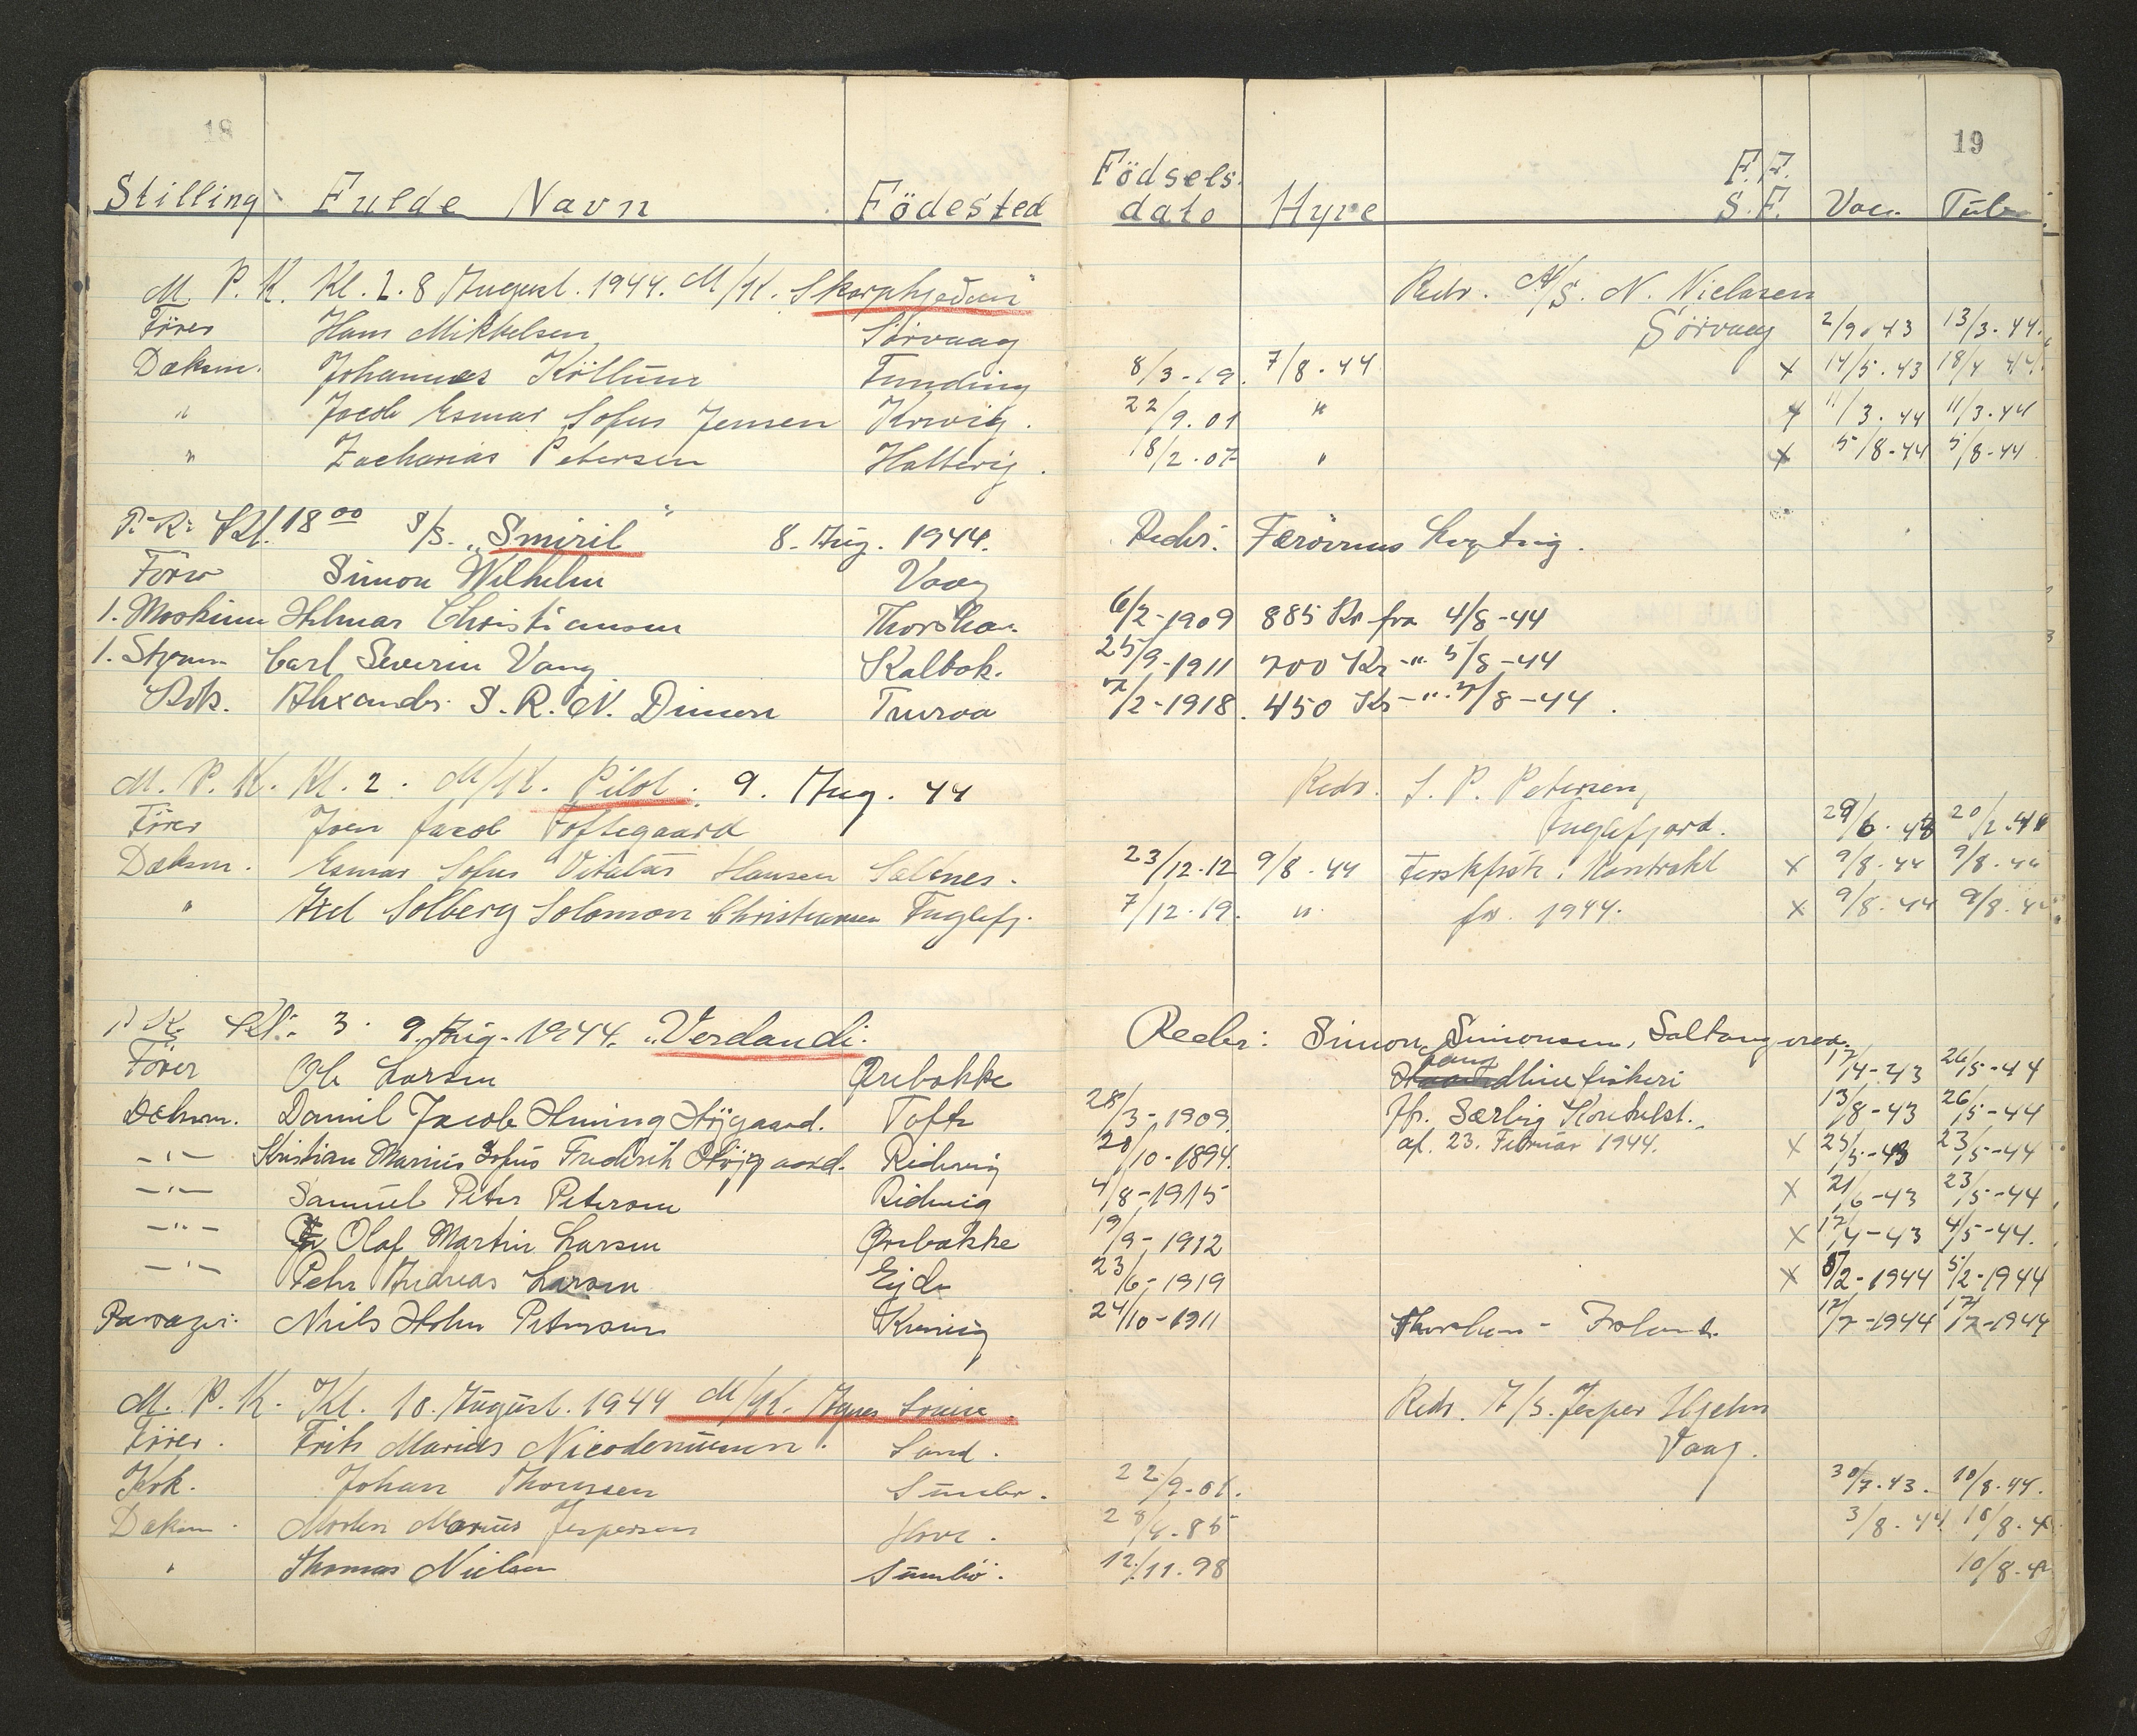 18
19
Stilling Fulde Navn Födested Födsels. dato Hyre F.F. S.F. Vac. Tub.
M. P. K. Kl. 2. 8 August. 1944. M/K. Skarphjedin" Redr. A/S. N. Nielsen
Förer Hans Mikkelsen Sörvaag Sörvaag 2/9.43 13/3.44.
Dæksm. Johannes Köllum Funding 8/3-19. 7/8.44 x 14/5.43 18/4 44
" Jacob Esmar Sofus Jensen Krivig. 22/9.01 " x 11/3.44 11/3.44
" Zacharias Petersen Haltevig. 18/2.07 " x 5/8-44 5/8-44
P. K. Kl. 18 00 S/S. "Smiril" 8. Aug. 1944. Redr. Færöernes Lagting.
Förer Simon Wilhelm Vaag
1. Maskinm Hilmar Christiansen Thorshavn 6/2-1909 885 Kr fra 4/8-44
1. Styrm. Carl Severin Vang Kalbak. 25/9-1911 700 Kr -"- 5/8-44
Kok. Alexander S. R. N. Dimon Tværaa 7/2-1918. 450 Kr -"- 7/8-44.
M. P. K. Kl. 2. M/K. Pilot. 9. Aug. 44 Redr. S. P. Petersen,
Förer Joen Jacob Toftegaard Fuglefjord. 29/6.43 20/2.41
Dæksm. Esmar Sofus Vitalis Hansen Saltnes. 23/12.12 9/8.44 Ferskfisk. Kontrakt x 9/8.44 9/8.44
" Axel Solberg Solomon Christiansen Fuglefj. 7/12.19. " for 1944. x 9/8.44 9/8.44
P. K. Kl. 3. 9. Aug. 1944. "Verdandi. Redr: Simon Simonsen, Saltangeraa.
Förer Ole Larsen Ørebakke Langline fiskeri 17/4-43 26/5-44
Dæksm. Daniel Jacob Hening Höjgaard. Tofte 28/3-1909. Jfr. Særlig Kontrakt. 13/8-43 26/5-44
-"- Kristian Marius Sofus Frederik Höjgaard. Ridevig 20/10-1894. af. 23. Februar 1944. x 25/5-43 23/5-44
-"- Samuel Peter Petersen Ridevig 4/8-1915 x 21/6-43 23/5-44
-"- Olaf Martin Larsen Ørebakke 19/9-1912 x 17/4-43 4/5-44.
-"- Peter Andreas Larsen Ejde 23/6-1919 x 5/2-1944 5/2-1944
Passager. Niels Holm Petersen 24/10-1911 Thorshavn - Island. 17/7-1944 17/7-1944
M. P. K. Kl. 10. August. 1944 M/K. Agnes Louise. Redr. A/S. Jesper Hjelm
Förer. Frits Marius Nicodemussen. Sand. Vaag.
Kok. Johan Thomsen Sumbö. 22/9-01. 30/7.43. 10/8.44.
Dæksm. Morten Marius Jespersen Hove. 28/4.85 3/8.44 10/8.4
" Thomas Nielsen Sumbö. 12/11.98 10/8.4